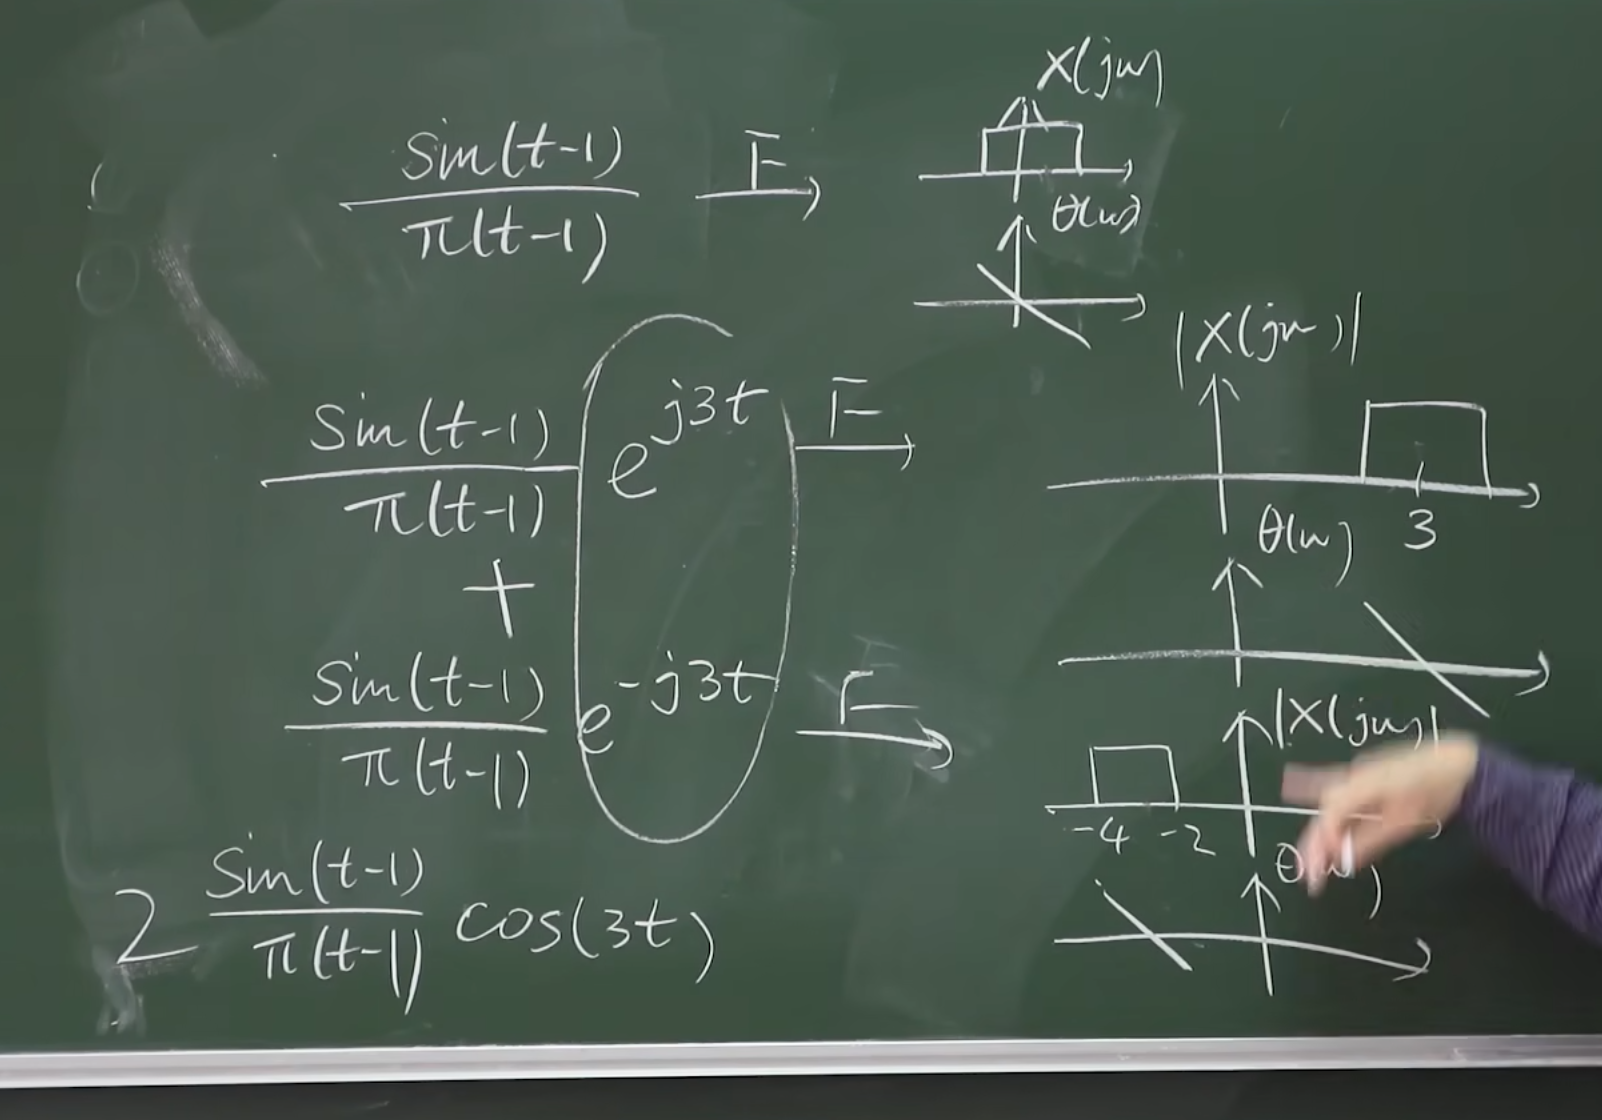 sin(t-1)
π(t-1)
F
X(jω)
θ(ω)
sin(t-1)
π(t-1)
e^{j3t}
F
|X(jω)|
3
θ(ω)
+
sin(t-1)
π(t-1)
e^{-j3t}
F
|X(jω)|
-4 -2
2 sin(t-1)
π(t-1)
cos(3t)